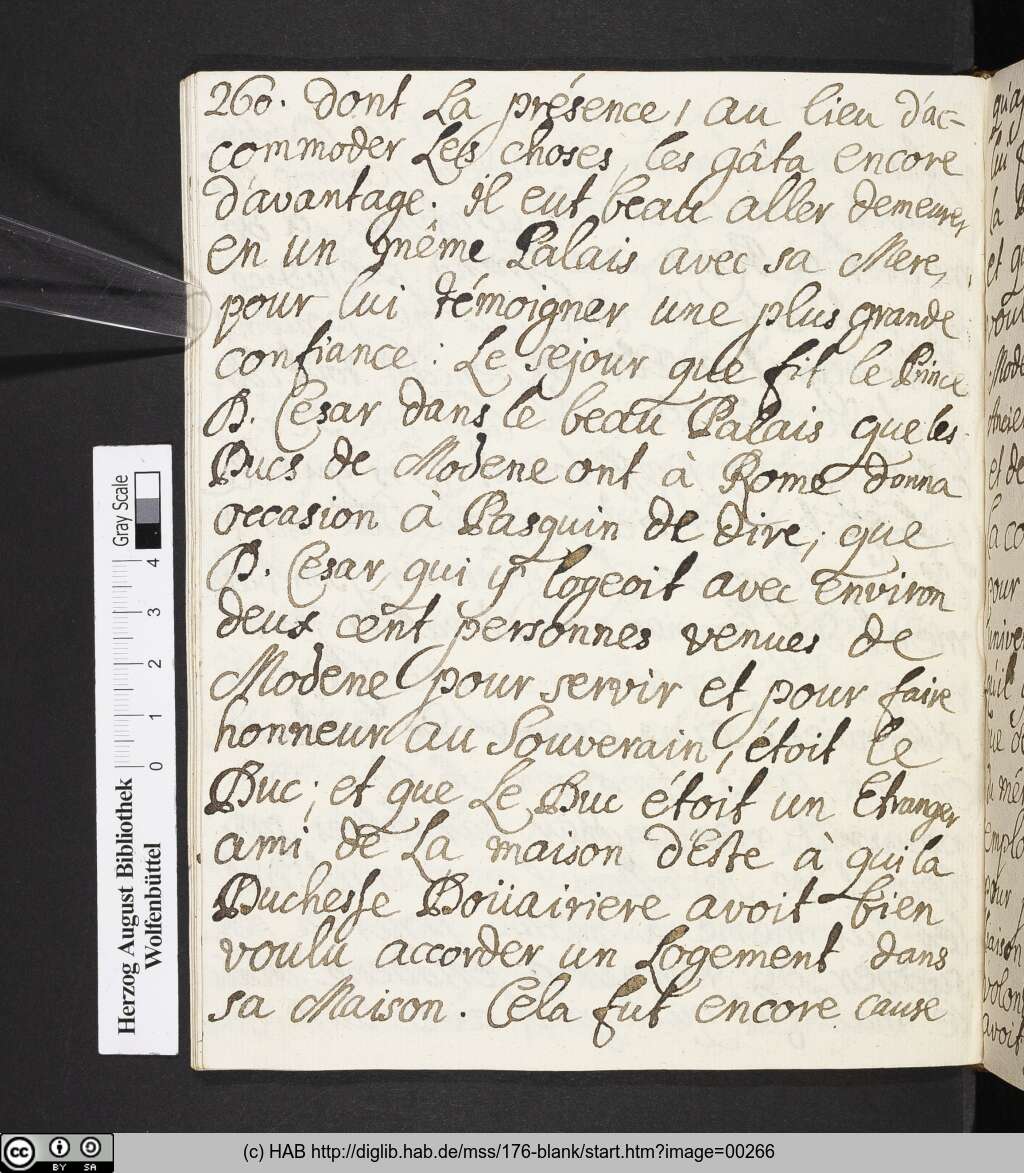 260. dont La présence, au lieu d'ac-
commoder Les choses, les gâta encore
d'avantage. Il eut beau aller demeurer
en un même Palais avec sa Mere,
pour lui témoigner une plus grande
confiance: Le sejour que fit le Prince
D. Cesar dans le beau Palais que les
Ducs de Modene ont à Rome donna
occasion à Pasquin de dire, que
D. Cesar, qui y logeoit avec environ
deux cent personnes venues de
Modene pour servir et pour faire
honneur au Souverain, étoit le
Duc; et que Le Duc étoit un Etranger
ami de La maison d'Este à qui la
Duchesse Doüairiere avoit bien
voulu accorder un Logement dans
sa Maison. Cela fut encore cause
Herzog August Bibliothek
Wolfenbüttel
Gray Scale
0 1 2 3 4
cc BY SA
(c) HAB http://diglib.hab.de/mss/176-blank/start.htm?image=00266